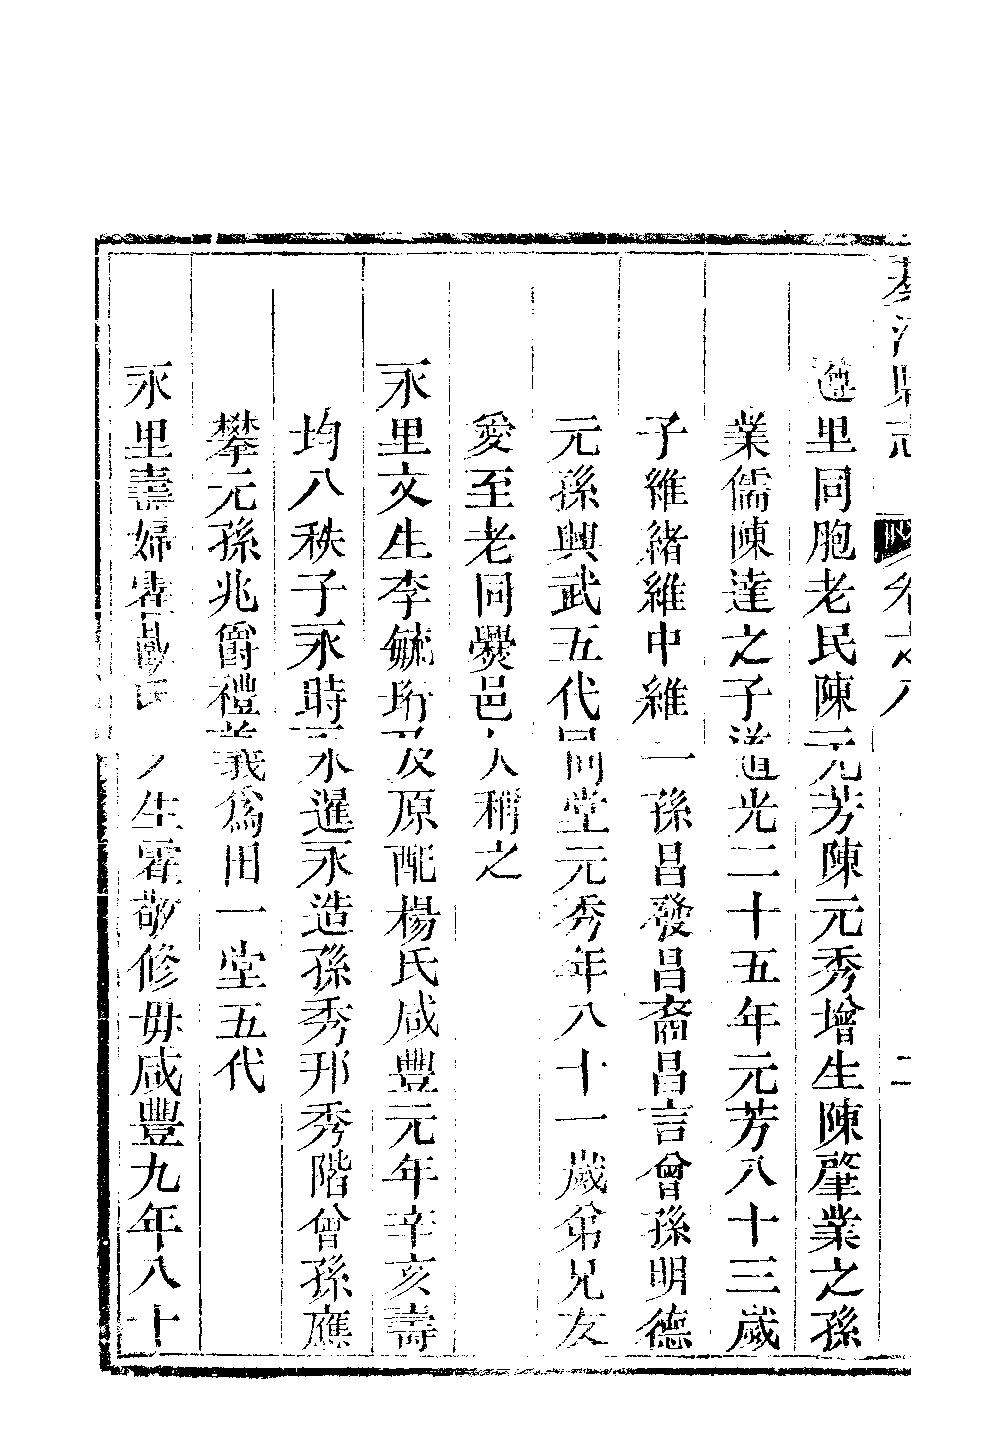 綦江縣志 卷之八 二
遵里同胞老民陳元芳陳元秀增生陳肇業之孫
業儒陳達之子道光二十五年元芳八十三歲
子維緒維中維一孫昌發昌裔昌言曾孫明德
元孫興武五代同堂元秀年八十一歲弟兄友
愛至老同爨邑人稱之
永里文生李毓珩及原配楊氏咸豐元年辛亥壽
均八秩子永時永暹永造孫秀邦秀階曾孫應
攀元孫兆爵禮義爲田一堂五代
永里壽婦霍戴氏 生霍敬修毋咸豐九年八十